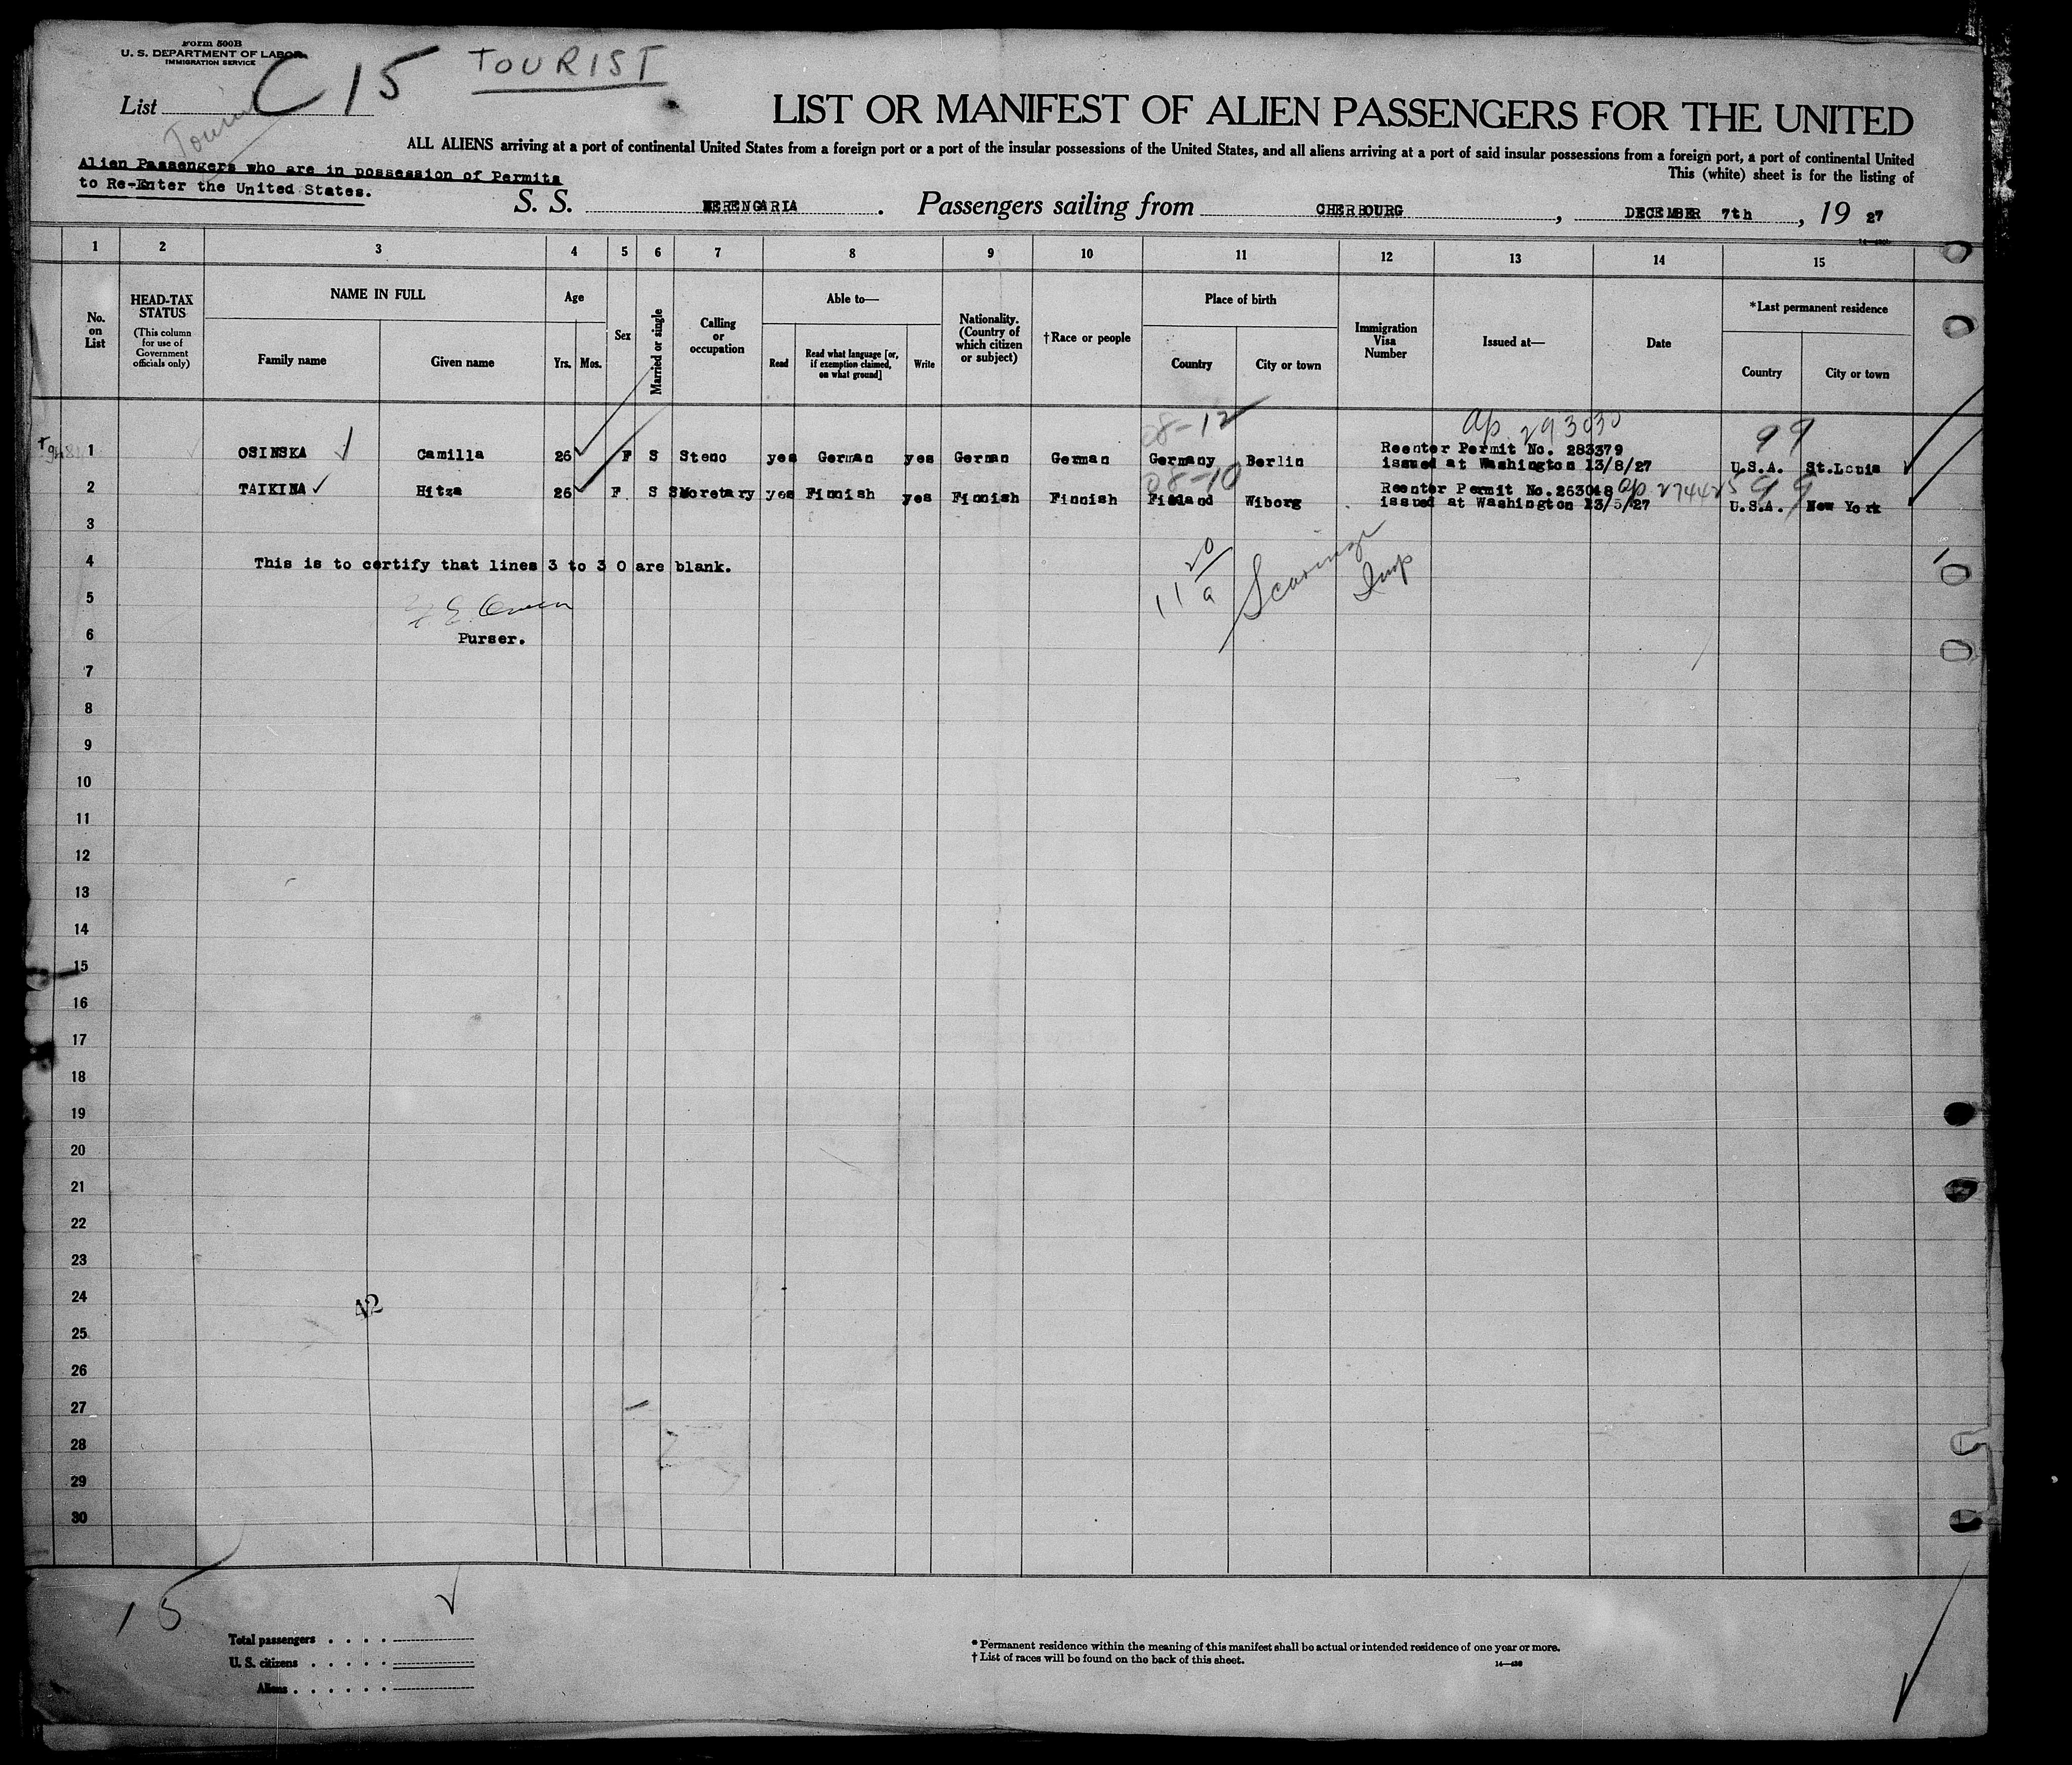 Form 500B
U. S. DEPARTMENT OF LABOR
IMMIGRATION SERVICE
C 15 TOURIST
List
Tourist
LIST OR MANIFEST OF ALIEN PASSENGERS FOR THE UNITED
ALL ALIENS arriving at a port of continental United States from a foreign port or a port of the insular possessions of the United States, and all aliens arriving at a port of said insular possessions from a foreign port, a port of continental United
Alien Passengers who are in possession of Permits
to Re-Enter the United States.
This (white) sheet is for the listing of
S. S. BERENGARIA . Passengers sailing from CHERBOURG , DECEMBER 7th , 19 27
1 2 3 4 5 6 7 8 9 10 11 12 13 14 15
No. on List
HEAD-TAX STATUS
(This column for use of Government officials only)
NAME IN FULL
Family name
Given name
Age
Yrs.
Mos.
Sex
Married or single
Calling or occupation
Able to—
Read
Read what language [or, if exemption claimed, on what ground]
Write
Nationality. (Country of which citizen or subject)
†Race or people
Place of birth
Country
City or town
Immigration Visa Number
Issued at—
Date
*Last permanent residence
Country
City or town
08-12 ap 293030 99
1 OSINSKA Camilla 26 F S Steno yes German yes German German Germany Berlin Reenter Permit No. 283379
issued at Washington 13/8/27 U.S.A. St.Louis
08-10 ap 274425 99
2 TAIKINA Hitza 26 F S Secretary yes Finnish yes Finnish Finnish Finland Wiborg Reenter Permit No.263048
issued at Washington 13/5/27 U.S.A. New York
3
4 This is to certify that lines 3 to 30 are blank.
20
11 a
Insp
5
E. Owen
6 Purser.
7
8
9
10
11
12
13
14
15
16
17
18
19
20
21
22
23
24
42
25
26
27
28
29
30
15
Total passengers
U. S. citizens
Aliens
* Permanent residence within the meaning of this manifest shall be actual or intended residence of one year or more.
† List of races will be found on the back of this sheet.